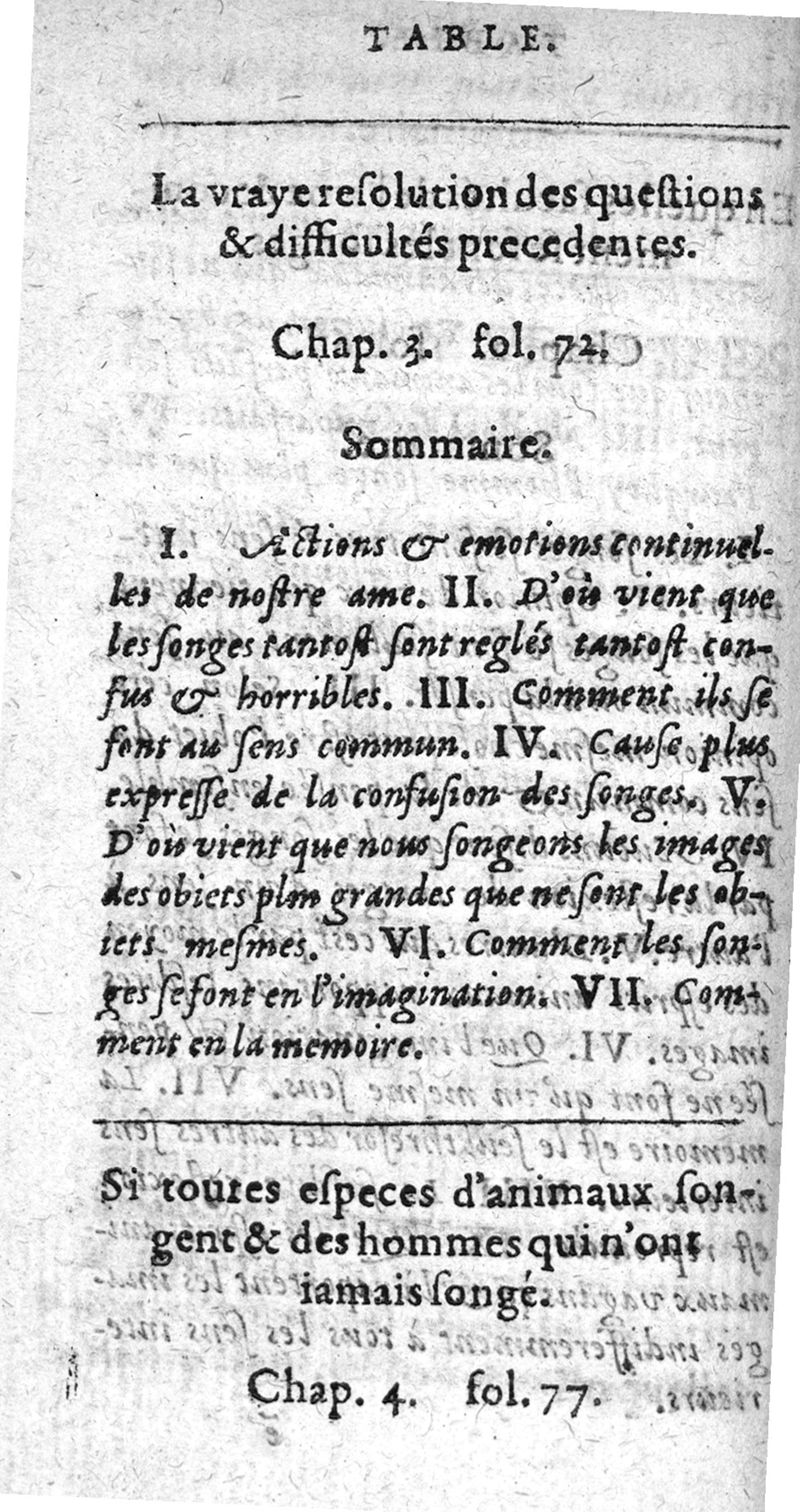 TABLE.
La vraye reſolution des queſtions
& difficultés precedentes.
Chap. 3. fol. 72.
Sommaire.
I. Actions & emotions continuel-
les de noſtre ame. II. D'où vient que
les ſonges tantoſt ſont reglés tantoſt con-
fus & horribles. III. Comment ils ſe
font au ſens commun. IV. Cauſe plus
expreſſe de la confuſion des ſonges. V.
D'où vient que nous ſongeons les images
des obiets plus grandes que ne ſont les ob-
iets meſmes. VI. Comment les ſon-
ges ſe font en l'imagination. VII. Com-
ment en la memoire.
Si toutes eſpeces d'animaux ſon-
gent & des hommes qui n'ont
iamais ſongé.
Chap. 4. fol. 77.